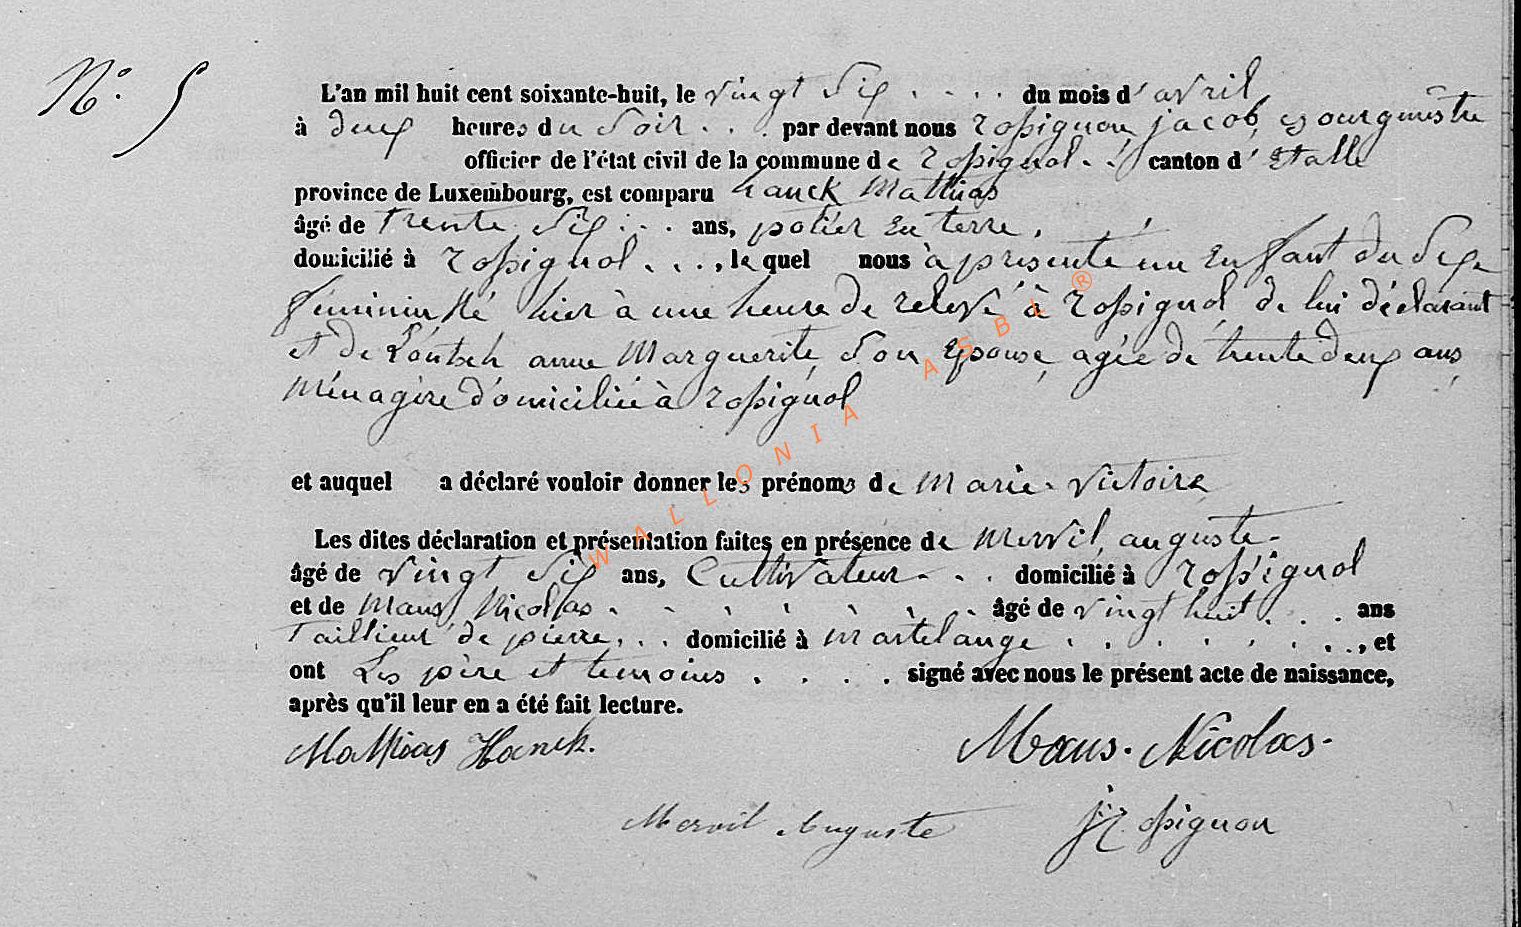 N° 5
L'an mil huit cent soixante-huit, le vingt six . . . . du mois d' avril
à deux heures du soir . . . par devant nous rossignon jacob, bourgmestre
officier de l'état civil de la commune de rossignol . . canton d' Etalle
province de Luxembourg, est comparu hanck Mathias
âgé de trente six . . . ans, potier en terre,
domicilié à rossignol . . . , lequel nous à présenté un Enfant du sexe
féminin né hier à une heure de relevé à rossignol de lui déclarant
et de Lontsch anne Marguerite son Epouse agée de trente deux ans
Ménagère domiciliée à rossignol
et auquel a déclaré vouloir donner les prénoms de Marie Victoire
Les dites déclaration et présentation faites en présence de Mervil, auguste
âgé de vingt six ans, Cultivateur . . . domicilié à rossignol
et de Maus Nicollas . . . . . . . âgé de vingt huit . . . ans
Taillieur de pierre . . . domicilié à Martelange . . . . . . . . , et
ont Les père et temoins . . . . signé avec nous le présent acte de naissance,
après qu'il leur en a été fait lecture.
Mathias Hanck.
Maus. Nicolas.
Mervil Auguste
j. rossignon
WALLONIA ASBL ®